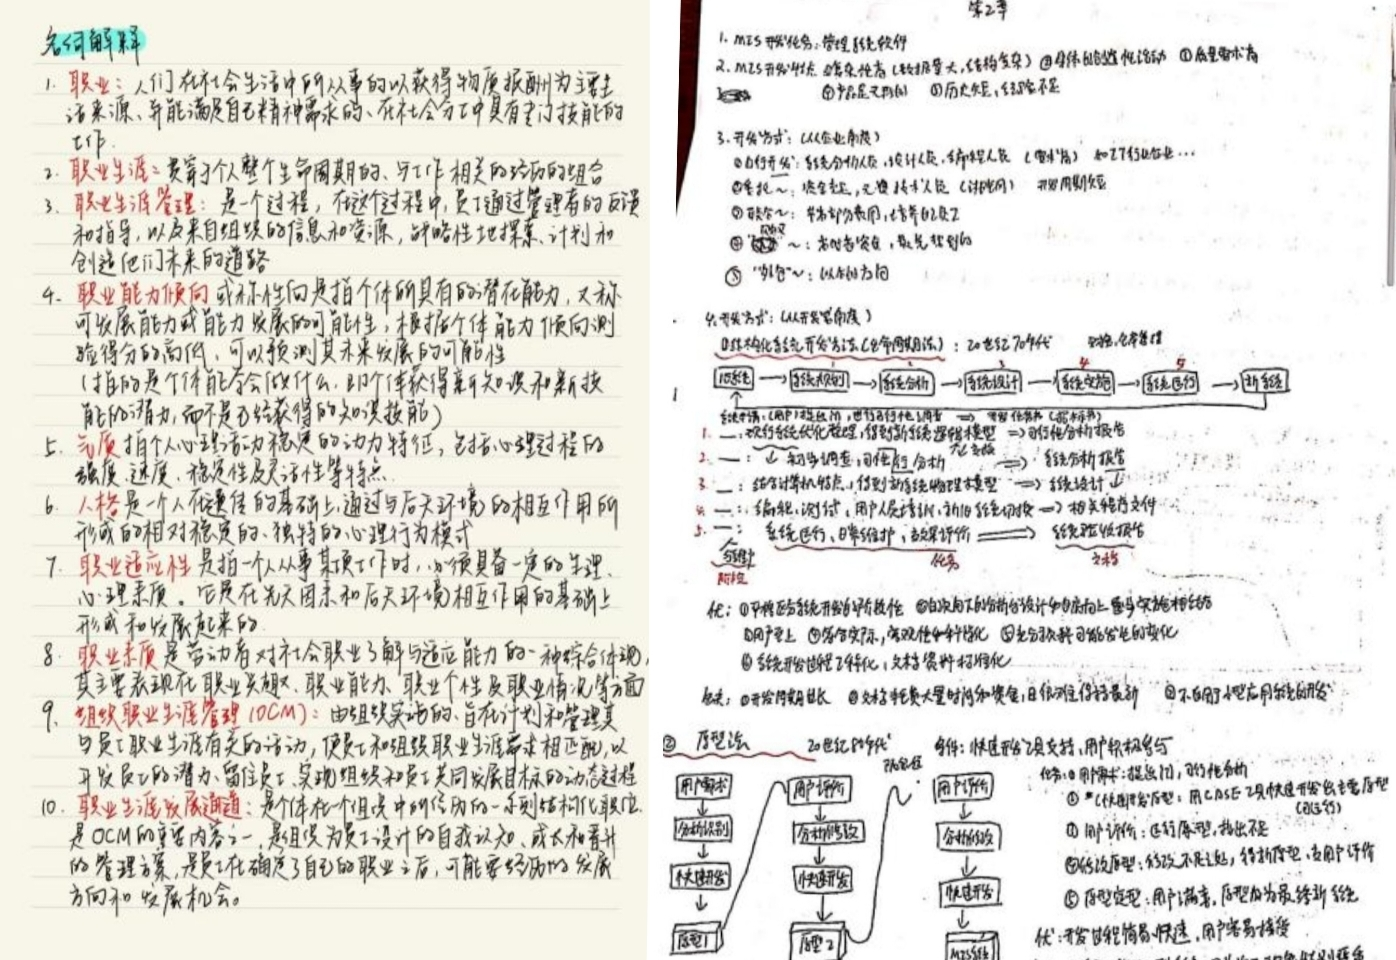 名词解释
1. 职业：人们在社会生活中所从事的以获得物质报酬为主要生
活来源、并能满足自己精神需求的、在社会分工中具有专门技能的
工作.
2. 职业生涯：贯穿于个人整个生命周期的、与工作相关的经历的组合
3. 职业生涯管理：是一个过程，在这个过程中，员工通过管理者的反馈
和指导，以及来自组织的信息和资源，战略性地探索、计划和
创造他们未来的道路
4. 职业能力倾向 或称性向是指个体所具有的潜在能力，又称
可发展能力或能力发展的可能性，根据个体能力倾向测
验得分的高低，可以预测其未来发展的可能性
（指的是个体能学会做什么，即个体获得新知识和新技
能的潜力，而不是已经获得的知识技能）
5. 气质 指个人心理活动稳定的动力特征，包括心理过程的
强度、速度、稳定性及灵活性等特点.
6. 人格 是一个人在遗传的基础上，通过与后天环境的相互作用所
形成的相对稳定的、独特的心理行为模式
7. 职业适应性 是指一个人从事某项工作时，必须具备一定的生理、
心理素质。它是在先天因素和后天环境相互作用的基础上
形成和发展起来的.
8. 职业素质 是劳动者对社会职业了解与适应能力的一种综合体现，
其主要表现在职业兴趣、职业能力、职业个性及职业情况等方面
9. 组织职业生涯管理（OCM）：由组织实施的、旨在计划和管理其
与员工职业生涯有关的活动，使员工和组织职业生涯需求相匹配，以
开发员工的潜力、留住员工、实现组织和员工共同发展目标的动态过程
10. 职业生涯发展通道：是个体在一个组织中所经历的一系列结构化职位.
是OCM的重要内容之一，是组织为员工设计的自我认知、成长和晋升
的管理方案，是员工在确定了自己的职业之后，可能要经历的发展
方向和发展机会。
第2章
1. MIS开发任务：管理系统软件
2. MIS开发特点 ①复杂性高（数据量大，结构复杂） ②集体的创造性活动 ③质量要求高
④产品是无形的 ⑤历史短，经验不足
3. 开发方式：（从企业角度）
①自行开发：系统分析人员，设计人员，编程人员（要求高） 和IT行业企业…
②委托～：资金充足，无懂技术人员 开发周期短
③联合～：
④ ～：
⑤ "外包"～：
4. 开发方式：（从开发者角度）
①结构化系统开发方法（生命周期法）：20世纪70年代
旧系统 → 系统规划 → 系统分析 → 系统设计 → 系统实施 → 系统运行 → 新系统
1. 现行系统优化整理，得到新系统逻辑模型 ⇒ 可行性分析报告
2. 初步调查，可行性分析 ⇒ 系统分析报告
3. 结合计算机特点，得到新系统物理模型 ⇒ 系统设计
4. 编程，测试，用户人员培训，新旧系统切换 ⇒ 相关程序文件
5. 系统运行，日常维护，与效果评价 ⇒ 系统验收报告
阶段 任务 文档
优：①严格区分系统开发的阶段性 ②自顶向下的分析与设计和自底向上逐步实施相结合
③用户至上 ④符合实际，客观性和科学化 ⑤充分预料可能发生的变化
⑥系统开发过程工程化，文档资料标准化
缺点：①开发周期长 ②文档耗费大量时间和资金，且很难保持最新 ③不适用小型应用系统的开发
② 原型法 20世纪80年代 条件：快速开发工具支持，用户积极参与
任务：①用户需求：提出问，可行性分析
用户需求 用户评价 用户评价
②快速开发原型：用CASE工具快速开发出主要原型
分析识别 分析修改 分析修改
③用户评价：运行原型，指出不足
快速开发 快速开发 快速开发
④修改原型：修改不足之处，得新原型，与用户评价
⑤原型定型：用户满意，原型成为最终新系统
原型1 原型2 MIS系统
优：开发过程简易快速，用户容易接受